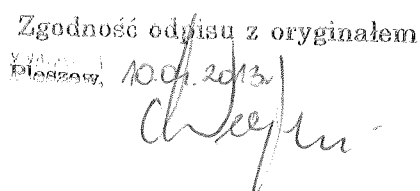 Zgodność odpisu z oryginałem
Pleszew, 10.01.2013r